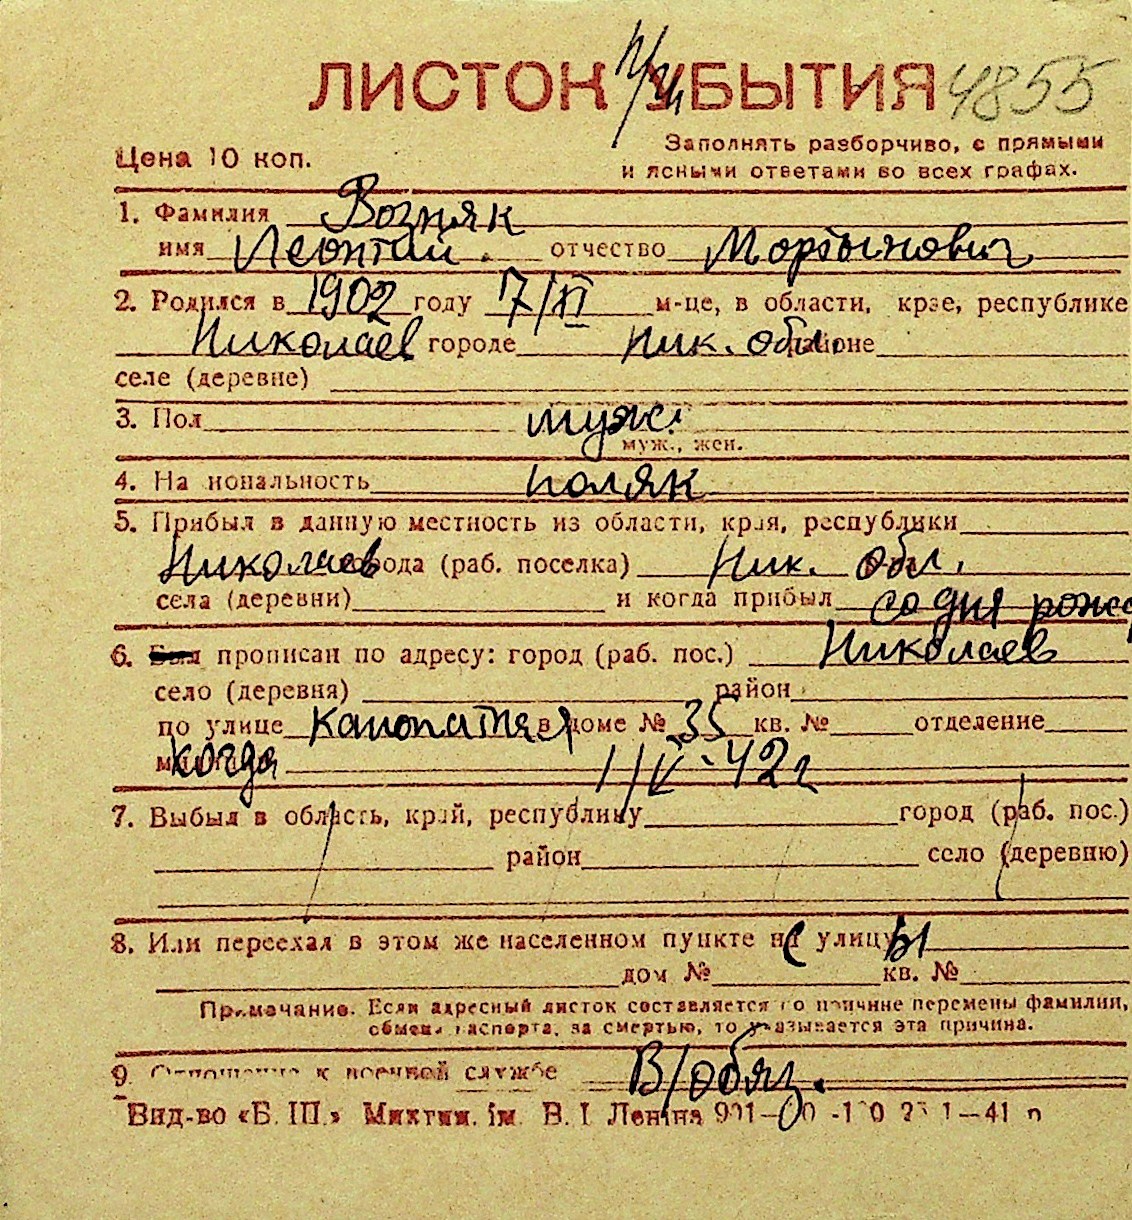 ЛИСТОК УБЫТИЯ 4855
Цена 10 коп.
Заполнять разборчиво, с прямыми
и ясными ответами во всех графах.
1. Фамилия Возняк
имя Леонтий. отчество Мартынович
2. Родился в 1902 году 17/XI м-це, в области, крае, республике
Николаев городе Ник. обл. районе
селе (деревне)
3. Пол муж.
муж., жен.
4. На иональность поляк
5. Прибыл в данную местность из области, края, республики
Николаев города (раб. поселка) Ник. обл.
села (деревни) и когда прибыл со дня рожд
6. Был прописан по адресу: город (раб. пос.) Николаев
село (деревня) район
по улице в доме № 35 кв. № отделение
когда 1/IV-42г
7. Выбыл в область, край, республику город (раб. пос.)
район село (деревню)
8. Или переехал в этом же населенном пункте на улицу
дом № кв. №
Примечание. Если адресный листок составляется по причине перемены фамилии,
обмена паспорта, за смертью, то указывается эта причина.
9. Отношение к военной службе В/обяз.
Вид-во «Б. ІП.» Микгим. ім. В. І Леніна